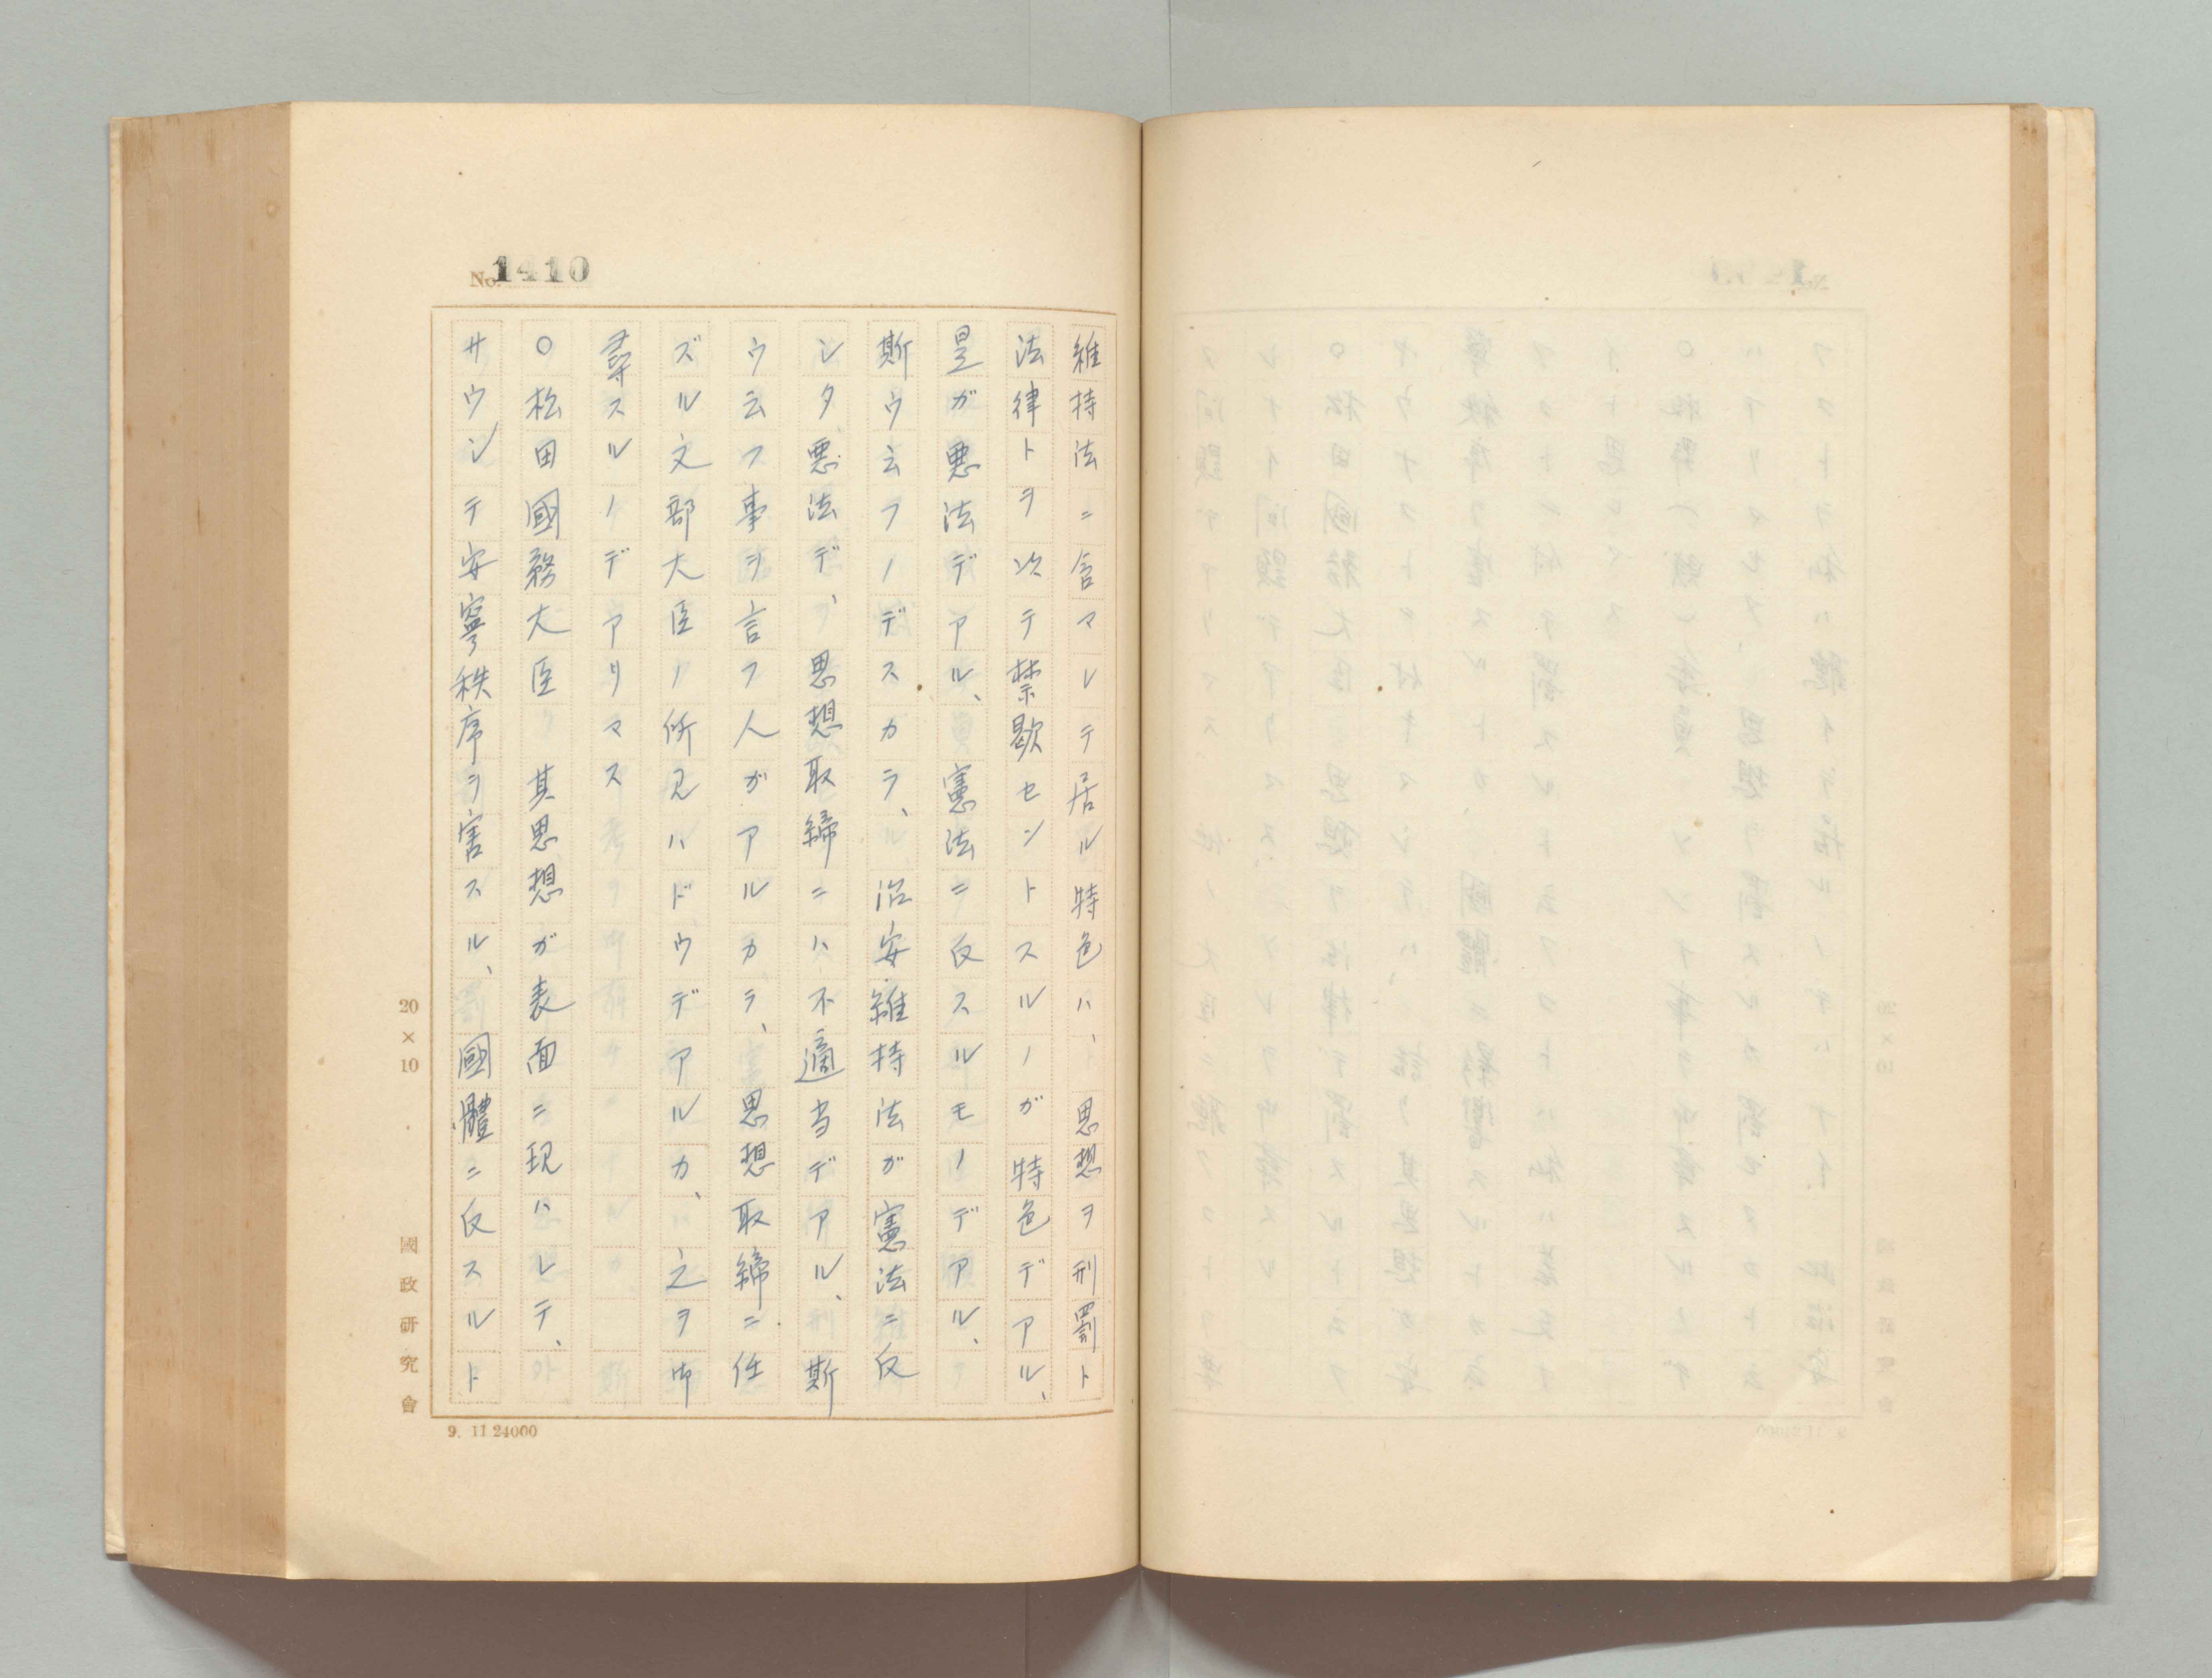 No. 1410
維持法ニ含マレテ居ル特色ハ、思想ヲ刑罰ト
法律トヲ次テ禁歇セントスルノガ特色デアル、
是ガ悪法デアル、憲法ニ反スルモノデアル、
斯ウ云フノデスカラ、治安維持法ガ憲法ニ反
シタ悪法デ、思想取締ニハ不適当デアル、斯
ウ云フ事ヲ言フ人ガアルカラ、思想取締ニ任
ズル文部大臣ノ所見ハドウデアルカ、之ヲ御
尋スルノデアリマス
○松田國務大臣 其思想ガ表面ニ現ハレテ、
サウシテ安寧秩序ヲ害スル、國體ニ反スルト
20×10
國政研究會
9. 11 24000